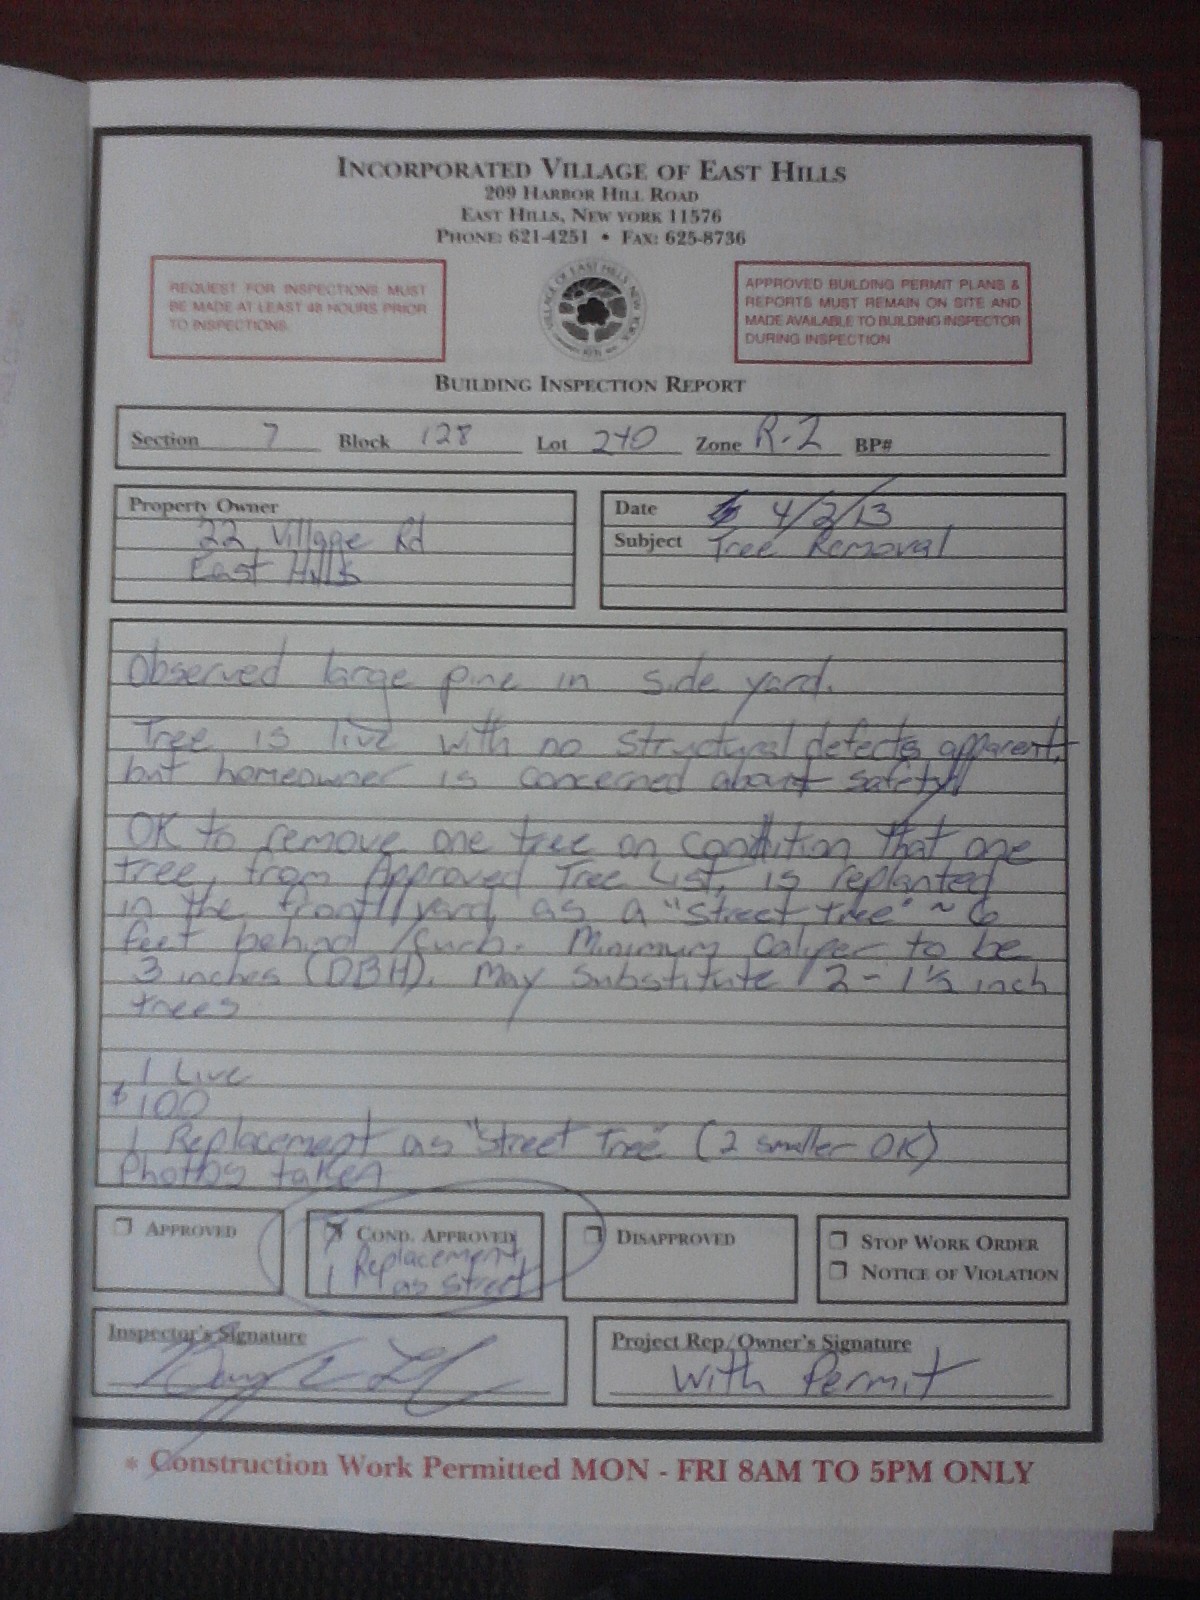 INCORPORATED VILLAGE OF EAST HILLS
209 HARBOR HILL ROAD
EAST HILLS, NEW YORK 11576
PHONE: 621-4251 • FAX: 625-8736
REQUEST FOR INSPECTIONS MUST
BE MADE AT LEAST 48 HOURS PRIOR
TO INSPECTIONS.
VILLAGE OF EAST HILLS, NEW YORK
1931
APPROVED BUILDING PERMIT PLANS &
REPORTS MUST REMAIN ON SITE AND
MADE AVAILABLE TO BUILDING INSPECTOR
DURING INSPECTION
BUILDING INSPECTION REPORT
Section 7 Block 128 Lot 240 Zone R-2 BP#
Property Owner
22 Village Rd
East Hills
Date 4/2/13
Subject Tree Removal
Observed large pine in side yard.
Tree is live with no structural defects apparent,
but homeowner is concerned about safety.
OK to remove one tree on condition that one
tree, from Approved Tree List, is replanted
in the front yard as a "street tree" ~ 6
feet behind curb. Minimum Caliper to be
3 inches (DBH). May substitute 2 - 1½ inch
trees
1 Live
$100
1 Replacement as "street tree" (2 smaller OK)
Photos taken
APPROVED
COND. APPROVED
1 Replacement
as street
DISAPPROVED
STOP WORK ORDER
NOTICE OF VIOLATION
Inspector's Signature
Project Rep/Owner's Signature
With Permit
* Construction Work Permitted MON - FRI 8AM TO 5PM ONLY